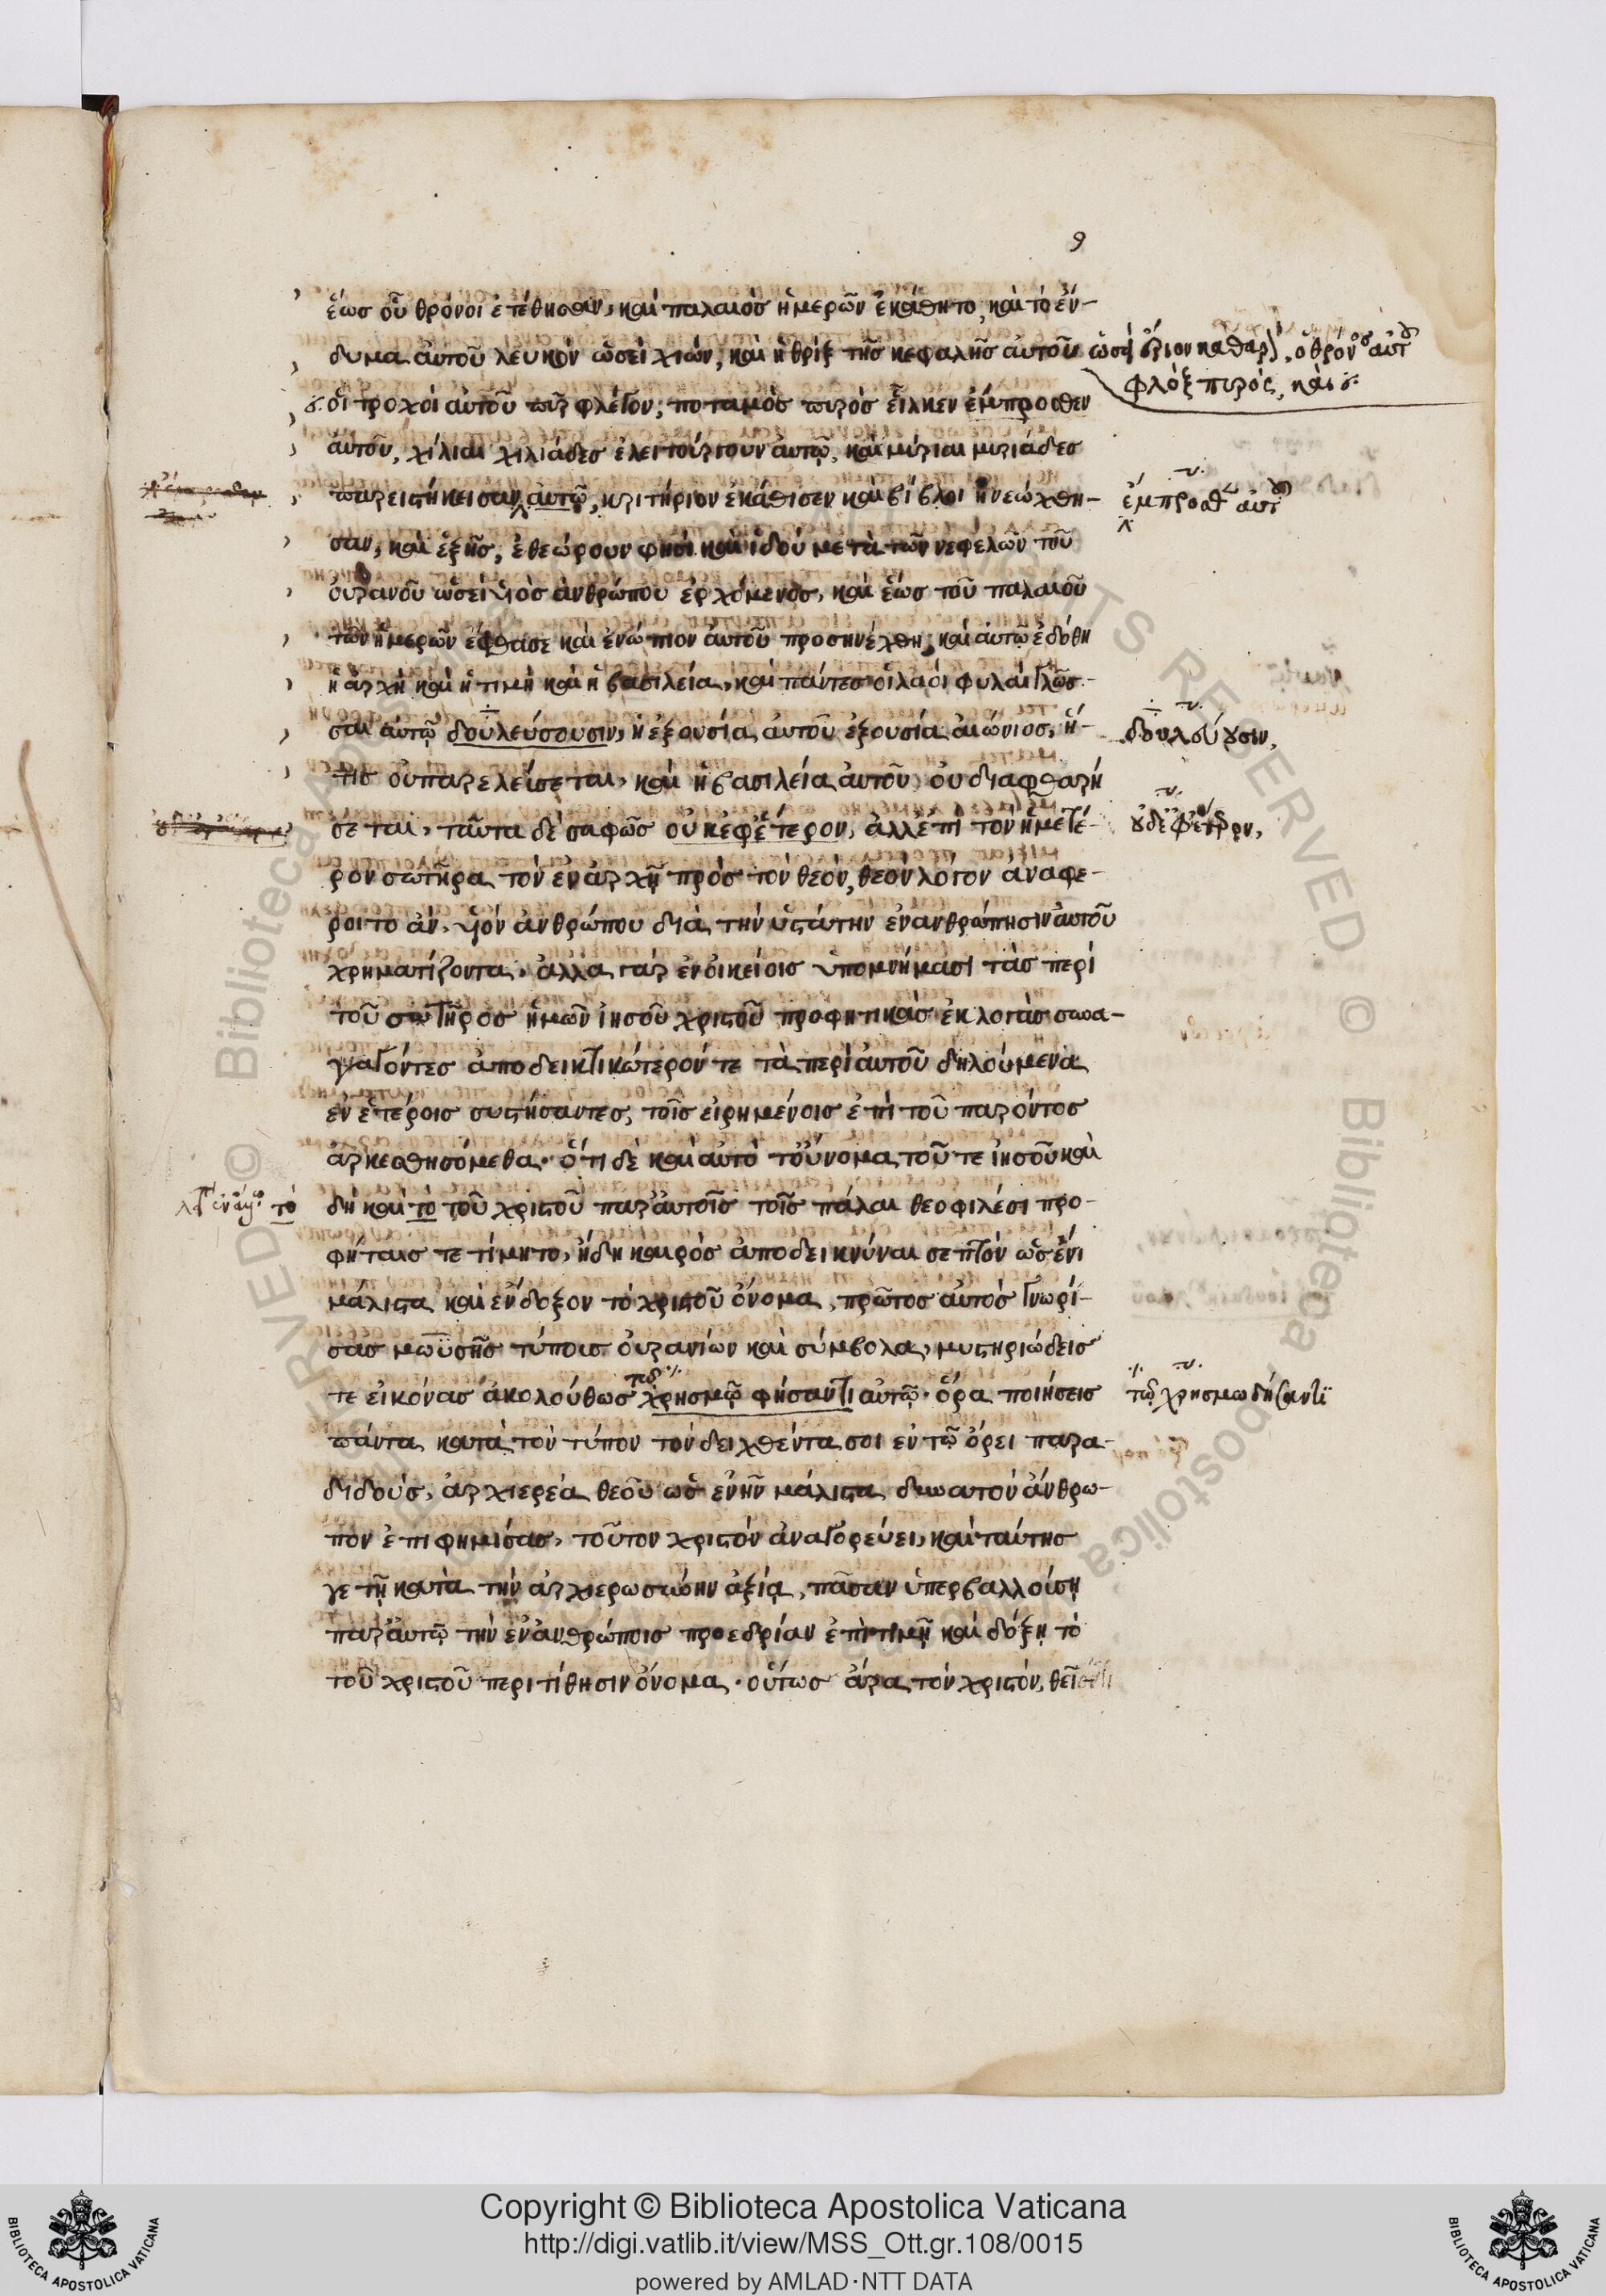 9
ἕωσ οὗ θρόνοι ἐτέθησαν, καὶ παλαιὸσ ἡμερῶν ἐκάθητο, καὶ τὸ ἔν-
δυμα αὐτοῦ λευκὸν ὡσεὶ χιὼν, καὶ ἡ θρὶξ τῆσ κεφαλῆσ αὐτοῦ ὡσεὶ ἔριον καθαρ), ὁ θρόνοσ αὐτοῦ
φλὸξ πυρόσ, καὶ
οἱ τροχοὶ αὐτοῦ πῦρ φλέγον, ποταμὸσ πυρὸσ εἷλκεν ἔμπροσθεν
αὐτοῦ, χίλιαι χιλιάδεσ ἐλειτούργουν αὐτῷ, καὶ μύριαι μυριάδεσ
παρειστήκεισαν αὐτῷ, κριτήριον ἐκάθισεν καὶ βίβλοι ἠνεώχθη- ἔμπροσθ αὐτοῦ
σαν, καὶ ἑξῆσ, ἐθεώρουν φησὶ καὶ ἰδοὺ μετὰ τῶν νεφελῶν τοῦ
οὐρανοῦ ὡσεὶ υἱὸσ ἀνθρώπου ἐρχόμενοσ, καὶ ἕωσ τοῦ παλαιοῦ
τῶν ἡμερῶν ἔφθασε καὶ ἐνώπιον αὐτοῦ προσηνέχθη, καὶ αὐτῷ ἐδόθη
ἡ ἀρχὴ καὶ ἡ τιμὴ καὶ ἡ βασιλεία, καὶ πάντεσ οἱ λαοὶ φυλαὶ γλῶσ-
σαι αὐτῷ δουλεύσουσιν, ἡ ἐξουσία αὐτοῦ ἐξουσία αἰώνιοσ, ἥ- δουλεύουσιν,
τισ οὐ παρελεύσεται, καὶ ἡ βασιλεία αὐτοῦ οὐ διαφθαρή
σεται, ταῦτα δὲ σαφῶσ οὐκ ἐφ' ἕτερον, ἀλλ' ἐπὶ τὸν ἡμέτε- οὐδ' ἐφ' ἕτερον,
ρον σωτῆρα τὸν ἐν ἀρχῇ πρὸσ τὸν θεὸν, θεὸν λόγον ἀναφέ-
ροιτο ἂν, υἱὸν ἀνθρώπου διὰ τὴν ὑστάτην ἐνανθρώπησιν αὐτοῦ
χρηματίζοντα. ἀλλὰ γὰρ ἐν οἰκείοισ ὑπομνήμασι τὰσ περὶ
τοῦ σωτῆροσ ἡμῶν ἰησοῦ χριστοῦ προφητικὰσ ἐκλογὰσ συνα-
γαγόντεσ ἀποδεικτικώτερόν τε τὰ περὶ αὐτοῦ δηλούμενα
ἐν ἑτέροισ συστήσαντεσ, τοῖσ εἰρημένοισ ἐπὶ τοῦ παρόντοσ
ἀρκεσθησόμεθα. ὅτι δὲ καὶ αὐτὸ τοὔνομα τοῦ τε ἰησοῦ καὶ
τὸ δὴ καὶ τὸ τοῦ χριστοῦ παρ' αὐτοῖσ τοῖσ πάλαι θεοφιλέσι προ-
φήταισ τετίμητο, ἤδη καιρὸσ ἀποδεικνύναι σεπτὸν ὡσ ἔνι
μάλιστα καὶ ἔνδοξον τὸ χριστοῦ ὄνομα, πρῶτοσ αὐτὸσ γνωρί-
σασ μωϋσῆσ τύποισ οὐρανίων καὶ σύμβολα, μυστηριώδεισ
τε εἰκόνασ ἀκολούθωσ χρησμῷ φήσαντι αὐτῷ. ὅρα ποιήσεισ τῷ χρησμωδήσαντι
πάντα κατὰ τὸν τύπον τὸν δειχθέντα σοι ἐν τῷ ὄρει παρα-
διδοὺσ, ἀρχιερέα θεοῦ ὡσ ἐνῆν μάλιστα δυνατὸν ἄνθρω-
πον ἐπιφημίσασ, τοῦτον χριστὸν ἀναγορεύει, καὶ ταύτησ
γε τῇ κατὰ τὴν ἀρχιερωσύνην ἀξίᾳ, πᾶσαν ὑπερβαλλούσῃ
παρ' αὐτῷ τὴν ἐν ἀνθρώποισ προεδρίαν ἐπὶ τιμῇ καὶ δόξῃ τὸ
τοῦ χριστοῦ περιτίθησιν ὄνομα. οὕτωσ ἄρα τὸν χριστὸν, θεῖόν τι
Copyright © Biblioteca Apostolica Vaticana
http://digi.vatlib.it/view/MSS_Ott.gr.108/0015
powered by AMLAD·NTT DATA